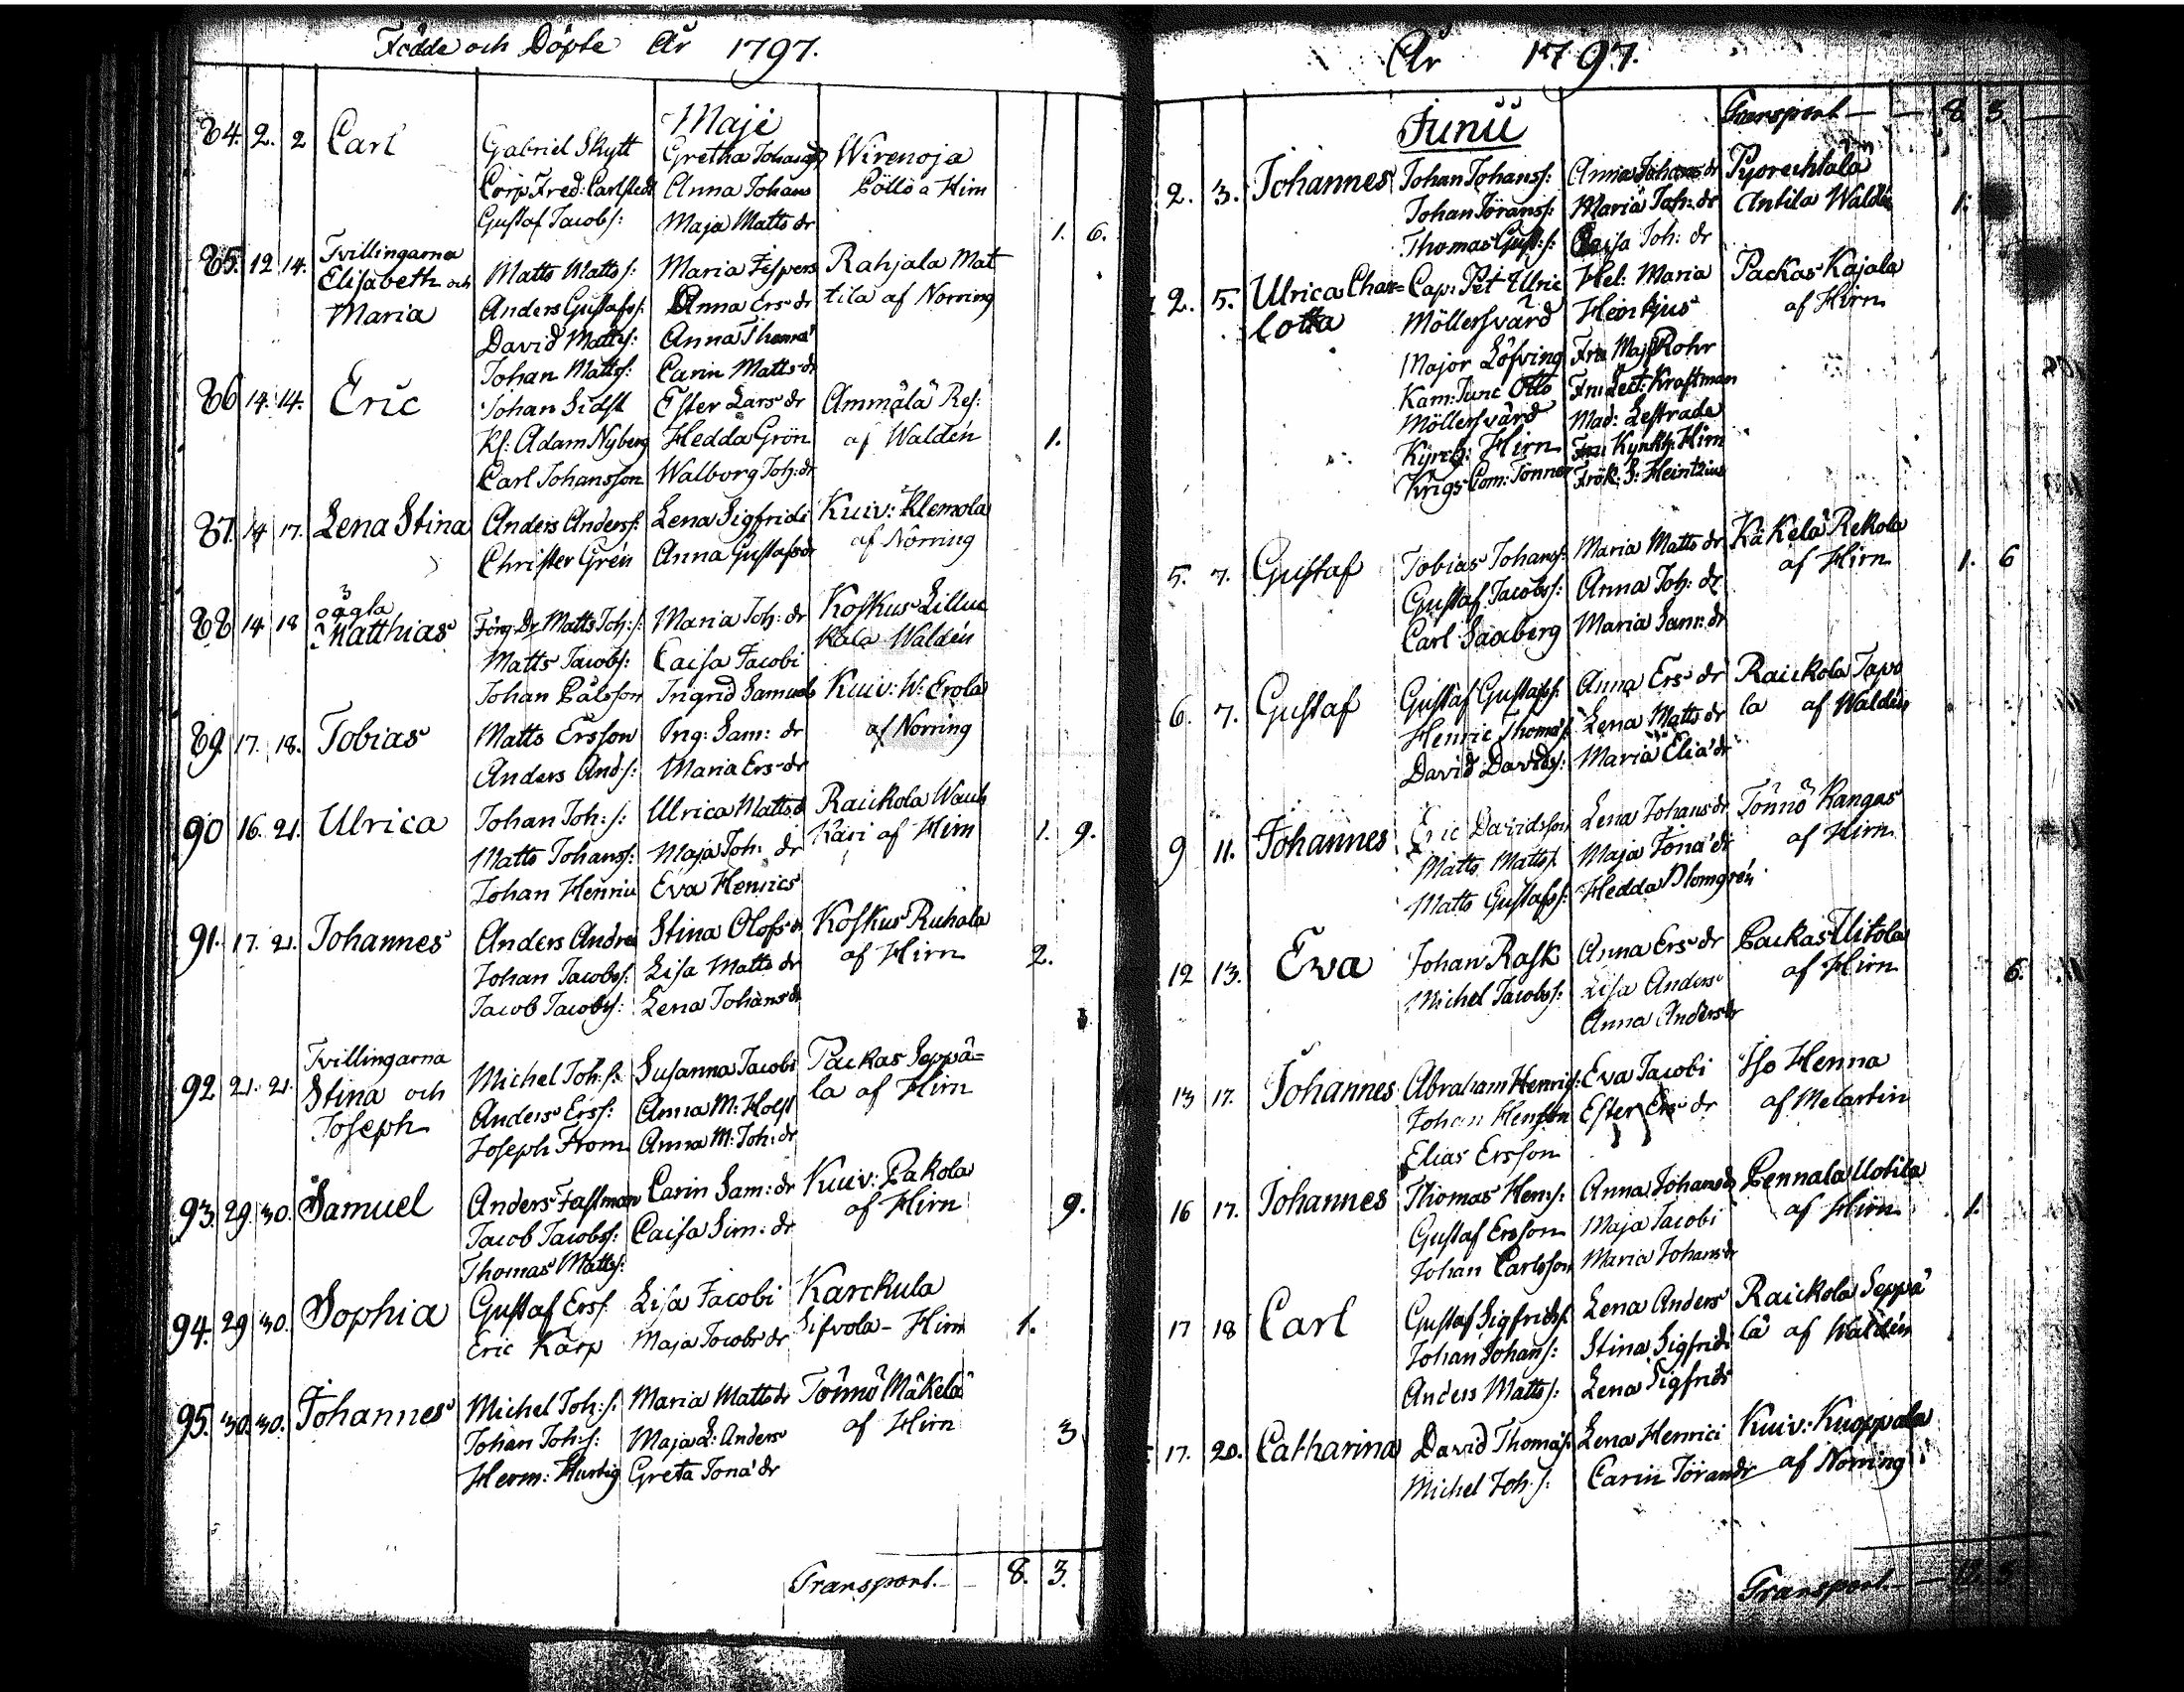 Födde och Döpte År 1797.
Maje
84. 2. 2 Carl Gabriel Skytt Gretha Johansdr Wirenoja
Corp. Fred: Carlstedt Anna Johans Pöllö a Hirn
Gustaf Jacobs: Maja Matts dr 1. 6.
85. 12 14. Tvillingarna
Elisabeth och Matts Matts: Maria Jespers Rahjala Mat
Maria Anders Gustafs: Anna Ers dr tila af Norring
David Matts: Anna Thoma
Johan Matts: Carin Matts dr
86 14. 14. Eric Johan Sidst Ester Lars dr Ammälä Res:
Kl: Adam Nyberg Hedda Grön af Waldén 1.
Carl Johansson Walborg Joh: dr
87. 14 17. Lena Stina Anders Anders: Lena Sigfridi Kuiv: Klemola
Christer Gren Anna Gustafsdr af Norring
88 14 18 oägta Matthias Förg. Dr Matts Joh: s: Maria Joh: dr Koskus Lillu
Matts Jacobs: Caisa Jacobi kala Waldén
Johan Pålsson Ingrid Samuels
89. 17. 18. Tobias Matts Ersson Ing: Sam: dr Kuiv: W: Erola
Anders And: s: Maria Ers dr af Norring
90 16. 21. Ulrica Johan Joh: s: Ulrica Matts d Raickola Wauh
Matts Johans: Maja Joh: dr käri af Hirn 1. 9.
Johan Henric Eva Henrics
91. 17. 21. Johannes Anders Andrea Stina Olofs dr Koskus Ruhala
Johan Jacobs: Lisa Matts dr af Hirn 2.
Jacob Jacobs: Lena Johans dr
92 21. 21. Tvillingarna
Stina och Michel Joh: s: Susanna Jacobi Packas Seppä=
Joseph Anders Erss: Anna M: Holst la af Hirn
Joseph From Anna M: Joh: dr
93. 29. 30. Samuel Anders Fastman Carin Sam: dr Kuiv: Pakola
Jacob Jacobs: Caisa Sim: dr af Hirn 9.
Thomas Matts:
94. 29 30. Sophia Gustaf Erss Lisa Jacobi Karckula
Eric Karp Maja Jacobs dr Sifvola - Hirn 1.
95. 30. 30. Johannes Michel Joh: s: Maria Matts dr Tönnö Mäkelä
Johan Joh: s: Maja L: Anders af Hirn 3
Herm: Hurtig Greta Jona dr
Transport. - 8. 3.
År 1797.
Junii Transport — — 8. 3. —
2. 3. Johannes Johan Johanss: Anna Johans dr Pyorechtala
Johan Jörans: Maria Joh: dr Antila Waldén 1.
Thomas Gust: s: Caisa Joh: dr
2. 5. Ulrica Char= Cap: Pet Ulric Hel: Maria Packas Kajala
lotta Möllersvärd Heinkjus af Hirn
Major Löfving Fru Maj Rohr
Kam: Junc Otto Fru Lect: Kraftman
Möllersvärd Mad: Lestrade
Kyrch: Hirn Fru Kyrkh: Hirn
Krigs Com: Tönner Frök: S: Heintzius
5. 7. Gustaf Tobias Johans: Maria Matts dr Käkelä Rekola
Gustaf Jacobs: Anna Joh: dr af Hirn 1. 6
Carl Saxberg Maria Sam: dr
6. 7. Gustaf Gustaf Gustafs: Anna Ers dr Raickola Tapo
Henric Thomas: Lena Matts dr la af Waldén
David Davids: Maria Elia dr
9 11. Johannes Eric Davidsson Lena Johans dr Tönnö Kangas
Matts Matts: Maja Jona dr af Hirn
Matts Gustafs: Hedda Blomgrén
12 13. Eva Johan Rask Anna Ers dr Packas Uitola
Michel Jacobs: Lisa Anders af Hirn 6.
Anna Anders dr
13 17. Johannes Abraham Henrics: Eva Jacobi Iso Henna
Johan Henson Ester Ers dr af Melartin
Elias Ersson
16 17. Johannes Thomas Hen: s: Anna Johans dr Pennala Uotila
Gustaf Ersson Maja Jacobi af Hirn 1.
Johan Carlsson Maria Johans dr
17 18 Carl Gustaf Sigfrids: Lena Anders Raickola Seppä
Johan Johans: Stina Sigfridi lä af Waldén
Anders Matts: Lena Sigfrids
17. 20. Catharina David Thomas: Lena Henrici Kuiv: Kuoppala
Michel Joh: s: Carin Jörans dr af Norring
Transport - —